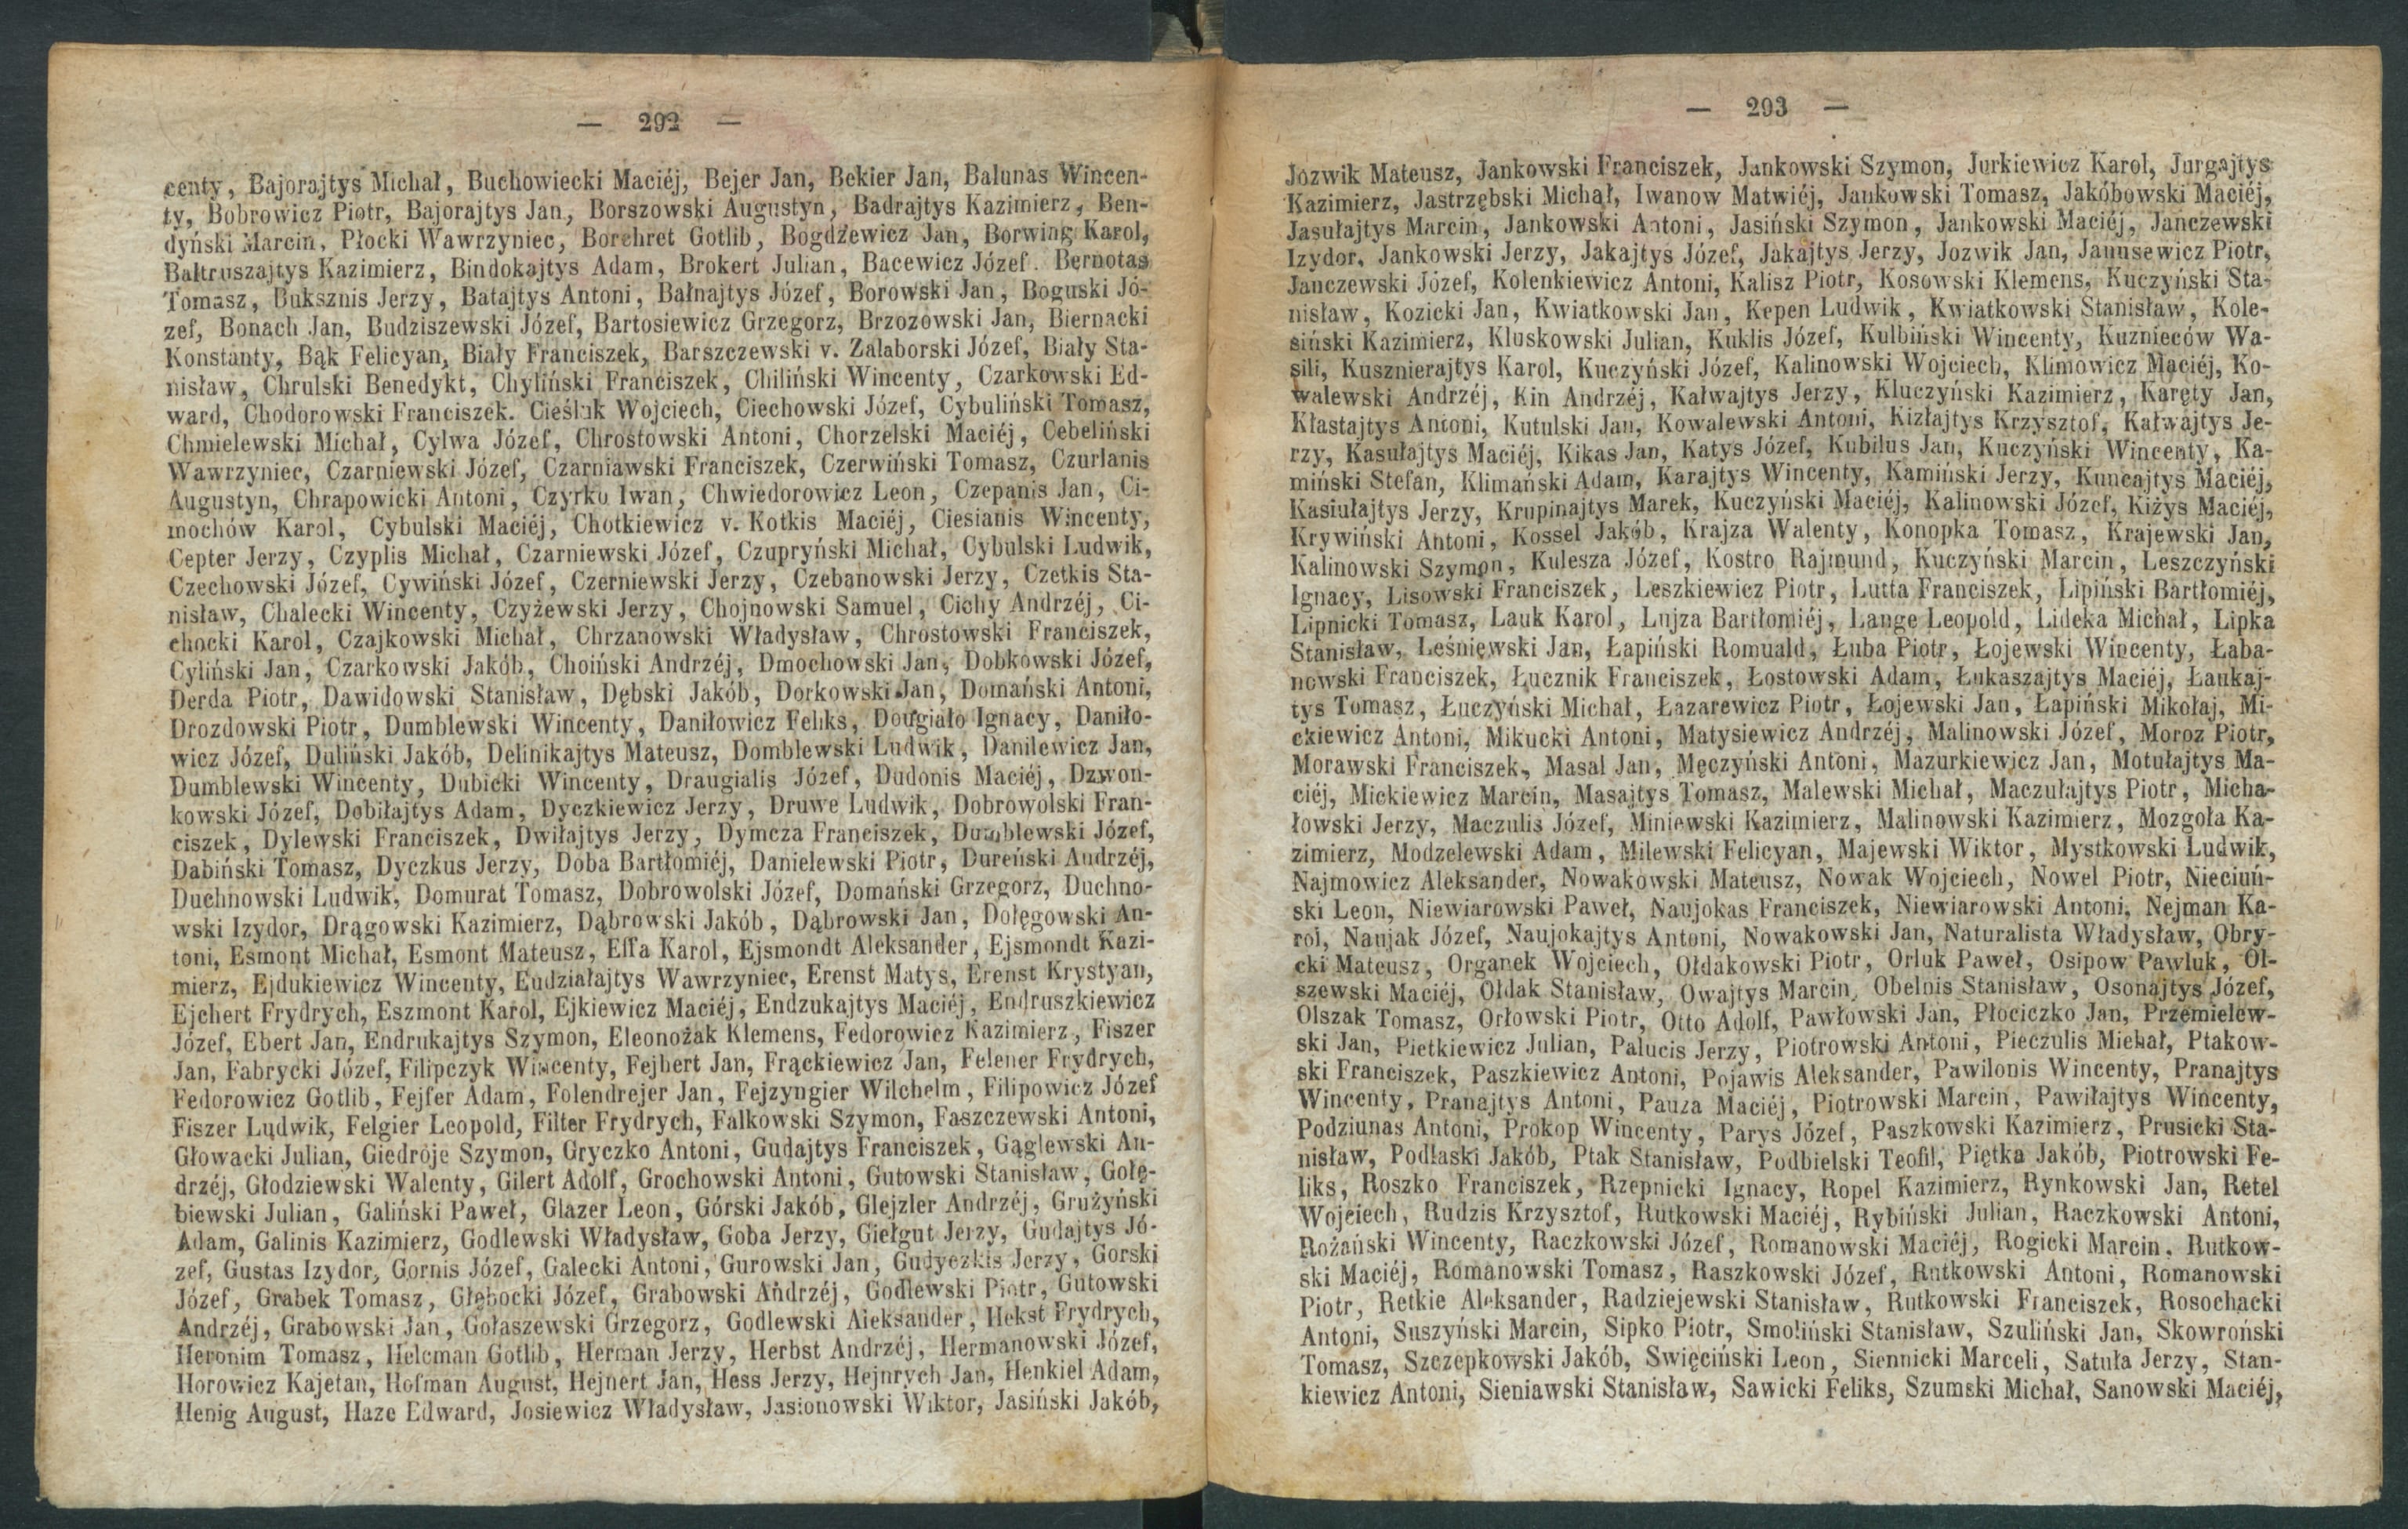 — 292 —
centy, Bajorajtys Michał, Buchowiecki Maciéj, Bejer Jan, Bekier Jan, Balunas Wincen-
ty, Bobrowicz Piotr, Bajorajtys Jan, Borszowski Augustyn, Badrajtys Kazimierz, Ben-
dyński Marcin, Płocki Wawrzyniec, Borchret Gotlib, Bogdżewicz Jan, Borwing Karol,
Bałtruszajtys Kazimierz, Bindokajtys Adam, Brokert Julian, Bacewicz Józef. Bernotas
Tomasz, Buksznis Jerzy, Batajtys Antoni, Bałnajtys Józef, Borowski Jan, Boguski Jó-
zef, Bonach Jan, Budziszewski Józef, Bartosiewicz Grzegorz, Brzozowski Jan, Biernacki
Konstanty, Bąk Felicyan, Biały Franciszek, Barszczewski v. Zalaborski Józef, Biały Sta-
nisław, Chrulski Benedykt, Chyliński Franciszek, Chiliński Wincenty, Czarkowski Ed-
ward, Chodorowski Franciszek. Cieślak Wojciech, Ciechowski Józef, Cybuliński Tomasz,
Chmielewski Michał, Cylwa Józef, Chrostowski Antoni, Chorzelski Maciéj, Cebeliński
Wawrzyniec, Czarniewski Józef, Czarniawski Franciszek, Czerwiński Tomasz, Czurlanis
Augustyn, Chrapowicki Antoni, Czyrko Iwan, Chwiedorowicz Leon, Czepanis Jan, Ci-
mochów Karol, Cybulski Maciéj, Chotkiewicz v. Kotkis Maciéj, Ciesianis Wincenty,
Cepter Jerzy, Czyplis Michał, Czarniewski Józef, Czupryński Michał, Cybulski Ludwik,
Czechowski Józef, Cywiński Józef, Czerniewski Jerzy, Czebanowski Jerzy, Czetkis Sta-
nisław, Chalecki Wincenty, Czyżewski Jerzy, Chojnowski Samuel, Cichy Andrzéj, Ci-
chocki Karol, Czajkowski Michał, Chrzanowski Władysław, Chrostowski Franciszek,
Cyliński Jan, Czarkowski Jakób, Choiński Andrzéj, Dmochowski Jan, Dobkowski Józef,
Derda Piotr, Dawidowski Stanisław, Dębski Jakób, Dorkowski Jan, Domański Antoni,
Drozdowski Piotr, Dumblewski Wincenty, Daniłowicz Feliks, Dougiało Ignacy, Daniło-
wicz Józef, Duliński Jakób, Delinikajtys Mateusz, Domblewski Ludwik, Danilewicz Jan,
Dumblewski Wincenty, Dubicki Wincenty, Draugialis Józef, Dudonis Maciéj, Dzwon-
kowski Józef, Dobiłajtys Adam, Dyczkiewicz Jerzy, Druwe Ludwik, Dobrowolski Fran-
ciszek, Dylewski Franciszek, Dwiłajtys Jerzy, Dymcza Franciszek, Dumblewski Józef,
Dabiński Tomasz, Dyczkus Jerzy, Doba Bartłomiéj, Danielewski Piotr, Dureński Andrzéj,
Duchnowski Ludwik, Domurat Tomasz, Dobrowolski Józef, Domański Grzegorz, Duchno-
wski Izydor, Drągowski Kazimierz, Dąbrowski Jakób, Dąbrowski Jan, Dołęgowski An-
toni, Esmont Michał, Esmont Mateusz, Effa Karol, Ejsmondt Aleksander, Ejsmondt Kazi-
mierz, Ejdukiewicz Wincenty, Eudziałajtys Wawrzyniec, Erenst Matys, Erenst Krystyan,
Ejchert Frydrych, Eszmont Karol, Ejkiewicz Maciéj, Endzukajtys Maciéj, Endruszkiewicz
Józef, Ebert Jan, Endrukajtys Szymon, Eleonożak Klemens, Fedorowicz Kazimierz, Fiszer
Jan, Fabrycki Józef, Filipczyk Wincenty, Fejhert Jan, Frąckiewicz Jan, Felener Frydrych,
Fedorowicz Gotlib, Fejfer Adam, Folendrejer Jan, Fejzyngier Wilchelm, Filipowicz Józef
Fiszer Ludwik, Felgier Leopold, Filter Frydrych, Falkowski Szymon, Faszczewski Antoni,
Głowacki Julian, Giedrójc Szymon, Gryczko Antoni, Gudajtys Franciszek, Gąglewski An-
drzéj, Głodziewski Walenty, Gilert Adolf, Grochowski Antoni, Gutowski Stanisław, Gołę-
biewski Julian, Galiński Paweł, Glazer Leon, Górski Jakób, Glejzler Andrzéj, Grużyński
Adam, Galinis Kazimierz, Godlewski Władysław, Goba Jerzy, Giełgut Jerzy, Gudajtys Jó-
zef, Gustas Izydor, Gornis Józef, Galecki Antoni, Gurowski Jan, Gudyczkis Jerzy, Gorski
Józef, Grabek Tomasz, Głębocki Józef, Grabowski Andrzéj, Godlewski Piotr, Gutowski
Andrzéj, Grabowski Jan, Gołaszewski Grzegorz, Godlewski Aleksander, Hekst Frydrych,
Heronim Tomasz, Helcman Gotlib, Herman Jerzy, Herbst Andrzéj, Hermanowski Józef,
Horowicz Kajetan, Hofman August, Hejnert Jan, Hess Jerzy, Hejnrych Jan, Henkiel Adam,
Henig August, Haze Edward, Josiewicz Władysław, Jasionowski Wiktor, Jasiński Jakób,
— 293 —
Jozwik Mateusz, Jankowski Franciszek, Jankowski Szymon, Jurkiewicz Karol, Jurgajtys
Kazimierz, Jastrzębski Michał, Iwanow Matwiéj, Jankowski Tomasz, Jakóbowski Maciéj,
Jasułajtys Marcin, Jankowski Antoni, Jasiński Szymon, Jankowski Maciéj, Janczewski
Izydor, Jankowski Jerzy, Jakajtys Józef, Jakajtys Jerzy, Jozwik Jan, Janusewicz Piotr,
Janczewski Józef, Kolenkiewicz Antoni, Kalisz Piotr, Kosowski Klemens, Kuczyński Sta-
nisław, Kozicki Jan, Kwiatkowski Jan, Kepen Ludwik, Kwiatkowski Stanisław, Kole-
siński Kazimierz, Kluskowski Julian, Kuklis Józef, Kulbiński Wincenty, Kuznieców Wa-
sili, Kusznierajtys Karol, Kuczyński Józef, Kalinowski Wojciech, Klimowicz Maciéj, Ko-
walewski Andrzéj, Kin Andrzéj, Kałwajtys Jerzy, Kluczyński Kazimierz, Karęty Jan,
Kłastajtys Antoni, Kutulski Jan, Kowalewski Antoni, Kizłajtys Krzysztof, Kałwajtys Je-
rzy, Kasułajtys Maciéj, Kikas Jan, Katys Józef, Kubilus Jan, Kuczyński Wincenty, Ka-
miński Stefan, Klimański Adam, Karajtys Wincenty, Kamiński Jerzy, Kuncajtys Maciéj,
Kasiułajtys Jerzy, Krupinajtys Marek, Kuczyński Maciéj, Kalinowski Józef, Kiżys Maciéj,
Krywiński Antoni, Kossel Jakób, Krajza Walenty, Konopka Tomasz, Krajewski Jan,
Kalinowski Szymon, Kulesza Józef, Kostro Rajmund, Kuczyński Marcin, Leszczyński
Ignacy, Lisowski Franciszek, Leszkiewicz Piotr, Lutta Franciszek, Lipiński Bartłomiéj,
Lipnicki Tomasz, Lauk Karol, Lujza Bartłomiéj, Lange Leopold, Lideka Michał, Lipka
Stanisław, Leśniewski Jan, Łapiński Romuald, Łuba Piotr, Łojewski Wincenty, Łaba-
nowski Franciszek, Łucznik Franciszek, Łostowski Adam, Łukaszajtys Maciéj, Łaukaj-
tys Tomasz, Łuczyński Michał, Łazarewicz Piotr, Łojewski Jan, Łapiński Mikołaj, Mi-
ckiewicz Antoni, Mikucki Antoni, Matysiewicz Andrzéj, Malinowski Józef, Moroz Piotr,
Morawski Franciszek, Masal Jan, Męczyński Antoni, Mazurkiewicz Jan, Motułajtys Ma-
ciéj, Mickiewicz Marcin, Masajtys Tomasz, Malewski Michał, Maczułajtys Piotr, Micha-
łowski Jerzy, Maczulis Józef, Miniewski Kazimierz, Malinowski Kazimierz, Mozgoła Ka-
zimierz, Modzelewski Adam, Milewski Felicyan, Majewski Wiktor, Mystkowski Ludwik,
Najmowicz Aleksander, Nowakowski Mateusz, Nowak Wojciech, Nowel Piotr, Nieciuń-
ski Leon, Niewiarowski Paweł, Naujokas Franciszek, Niewiarowski Antoni, Nejman Ka-
rol, Naujak Józef, Naujokajtys Antoni, Nowakowski Jan, Naturalista Władysław, Obry-
cki Mateusz, Organek Wojciech, Ołdakowski Piotr, Orluk Paweł, Osipow Pawluk, Ol-
szewski Maciéj, Ołdak Stanisław, Owajtys Marcin, Obelnis Stanisław, Osonajtys Józef,
Olszak Tomasz, Orłowski Piotr, Otto Adolf, Pawłowski Jan, Płociczko Jan, Przemielew-
ski Jan, Pietkiewicz Julian, Palucis Jerzy, Piotrowski Antoni, Pieczulis Michał, Ptakow-
ski Franciszek, Paszkiewicz Antoni, Pojawis Aleksander, Pawilonis Wincenty, Pranajtys
Wincenty, Pranajtys Antoni, Pauza Maciéj, Piotrowski Marcin, Pawiłajtys Wincenty,
Podziunas Antoni, Prokop Wincenty, Parys Józef, Paszkowski Kazimierz, Prusicki Sta-
nisław, Podlaski Jakób, Ptak Stanisław, Podbielski Teofil, Piętka Jakób, Piotrowski Fe-
liks, Roszko Franciszek, Rzepnicki Ignacy, Ropel Kazimierz, Rynkowski Jan, Retel
Wojciech, Rudzis Krzysztof, Rutkowski Maciéj, Rybiński Julian, Raczkowski Antoni,
Rożański Wincenty, Raczkowski Józef, Romanowski Maciéj, Rogicki Marcin, Rutkow-
ski Maciéj, Romanowski Tomasz, Raszkowski Józef, Rutkowski Antoni, Romanowski
Piotr, Retkie Aleksander, Radziejewski Stanisław, Rutkowski Franciszek, Rosochacki
Antoni, Suszyński Marcin, Sipko Piotr, Smoliński Stanisław, Szuliński Jan, Skowroński
Tomasz, Szczepkowski Jakób, Swięciński Leon, Siennicki Marceli, Satuła Jerzy, Stan-
kiewicz Antoni, Sieniawski Stanisław, Sawicki Feliks, Szumski Michał, Sanowski Maciéj,